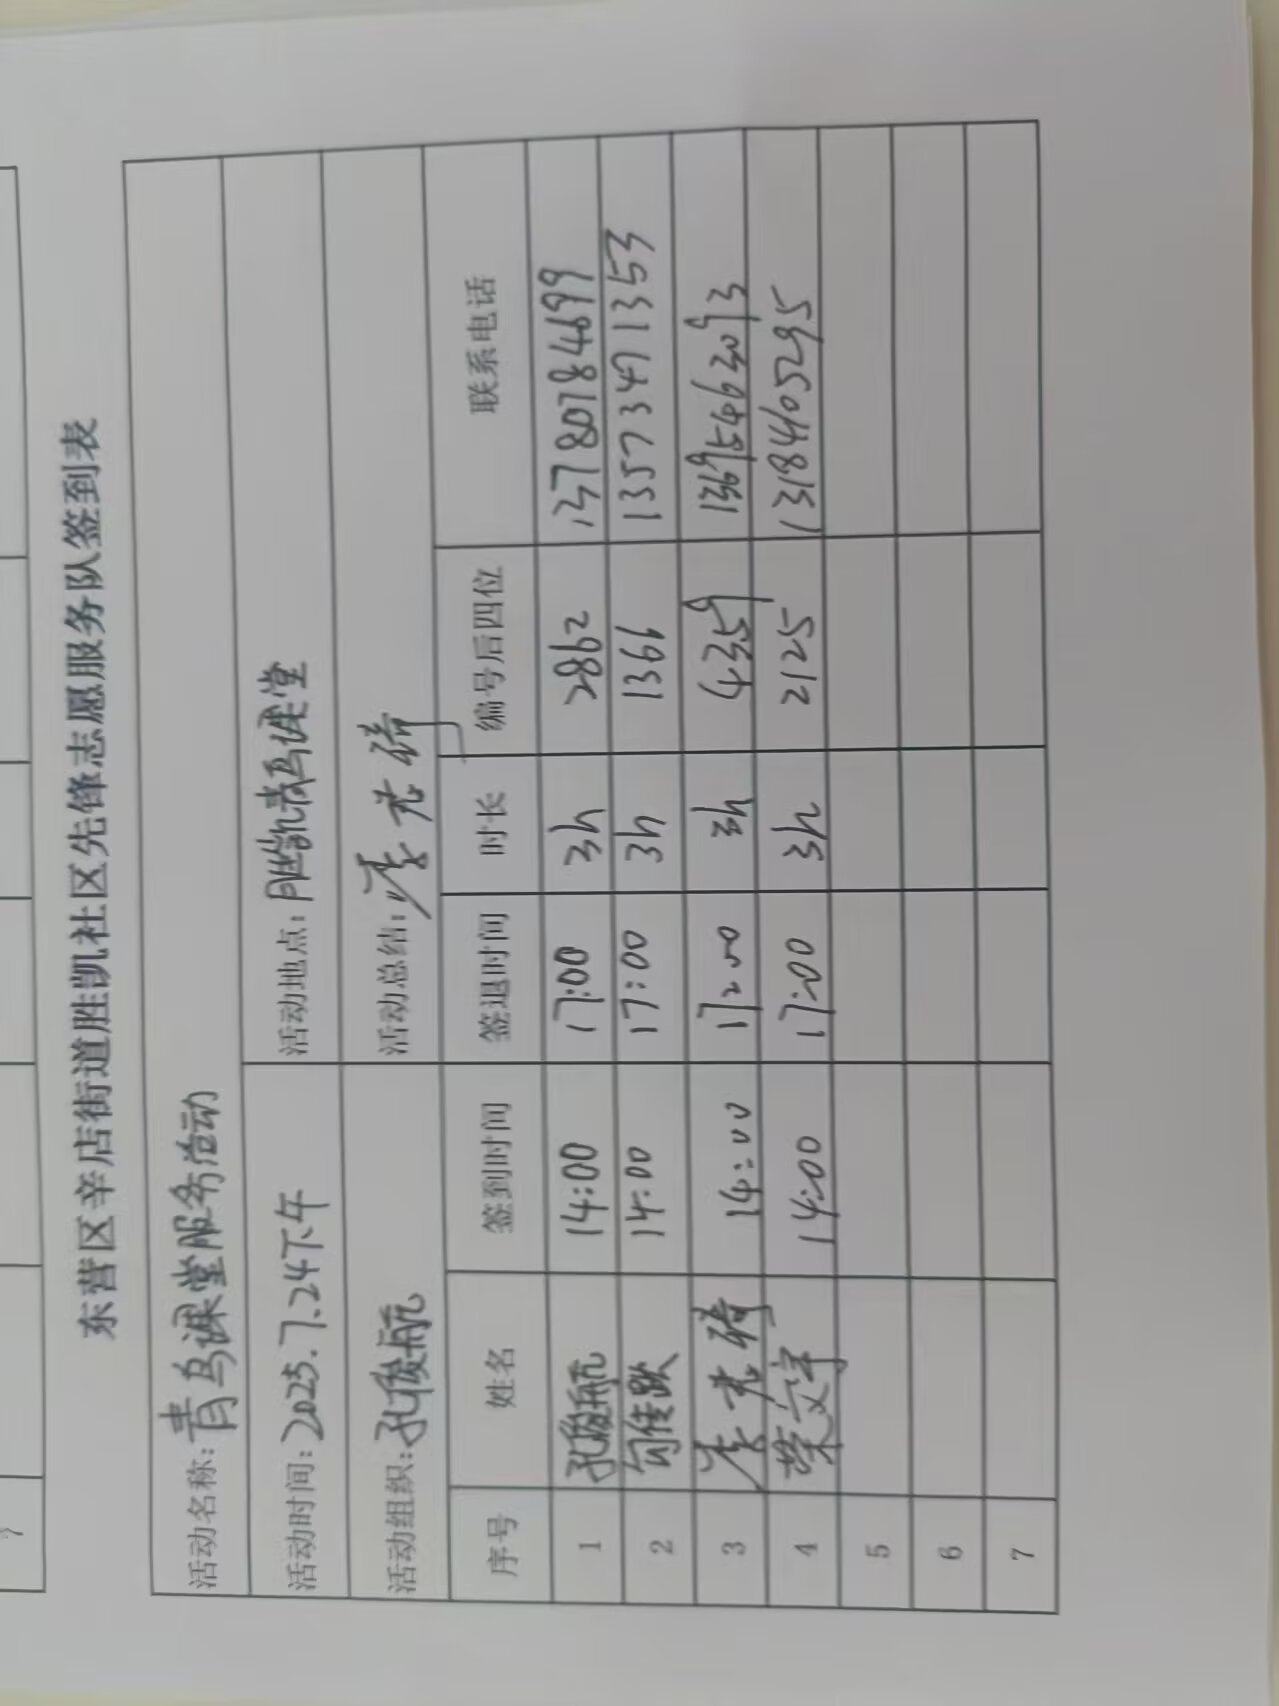 东营区辛店街道胜凯社区先锋志愿服务队签到表
活动名称：青鸟课堂服务活动
活动时间：2025.7.24下午 活动地点：胜凯青鸟课堂
活动组织：孔俊航 活动总结：李光琦
序号 姓名 签到时间 签退时间 时长 编号后四位 联系电话
1 孔俊航 14:00 17:00 3h 2862 13780784699
2 勾佳跃 14:00 17:00 3h 1366 13573471353
3 李光琦 14:00 17:00 3h 4359 13695463093
4 荣文宇 14:00 17:00 3h 2125 13184405295
5
6
7
7